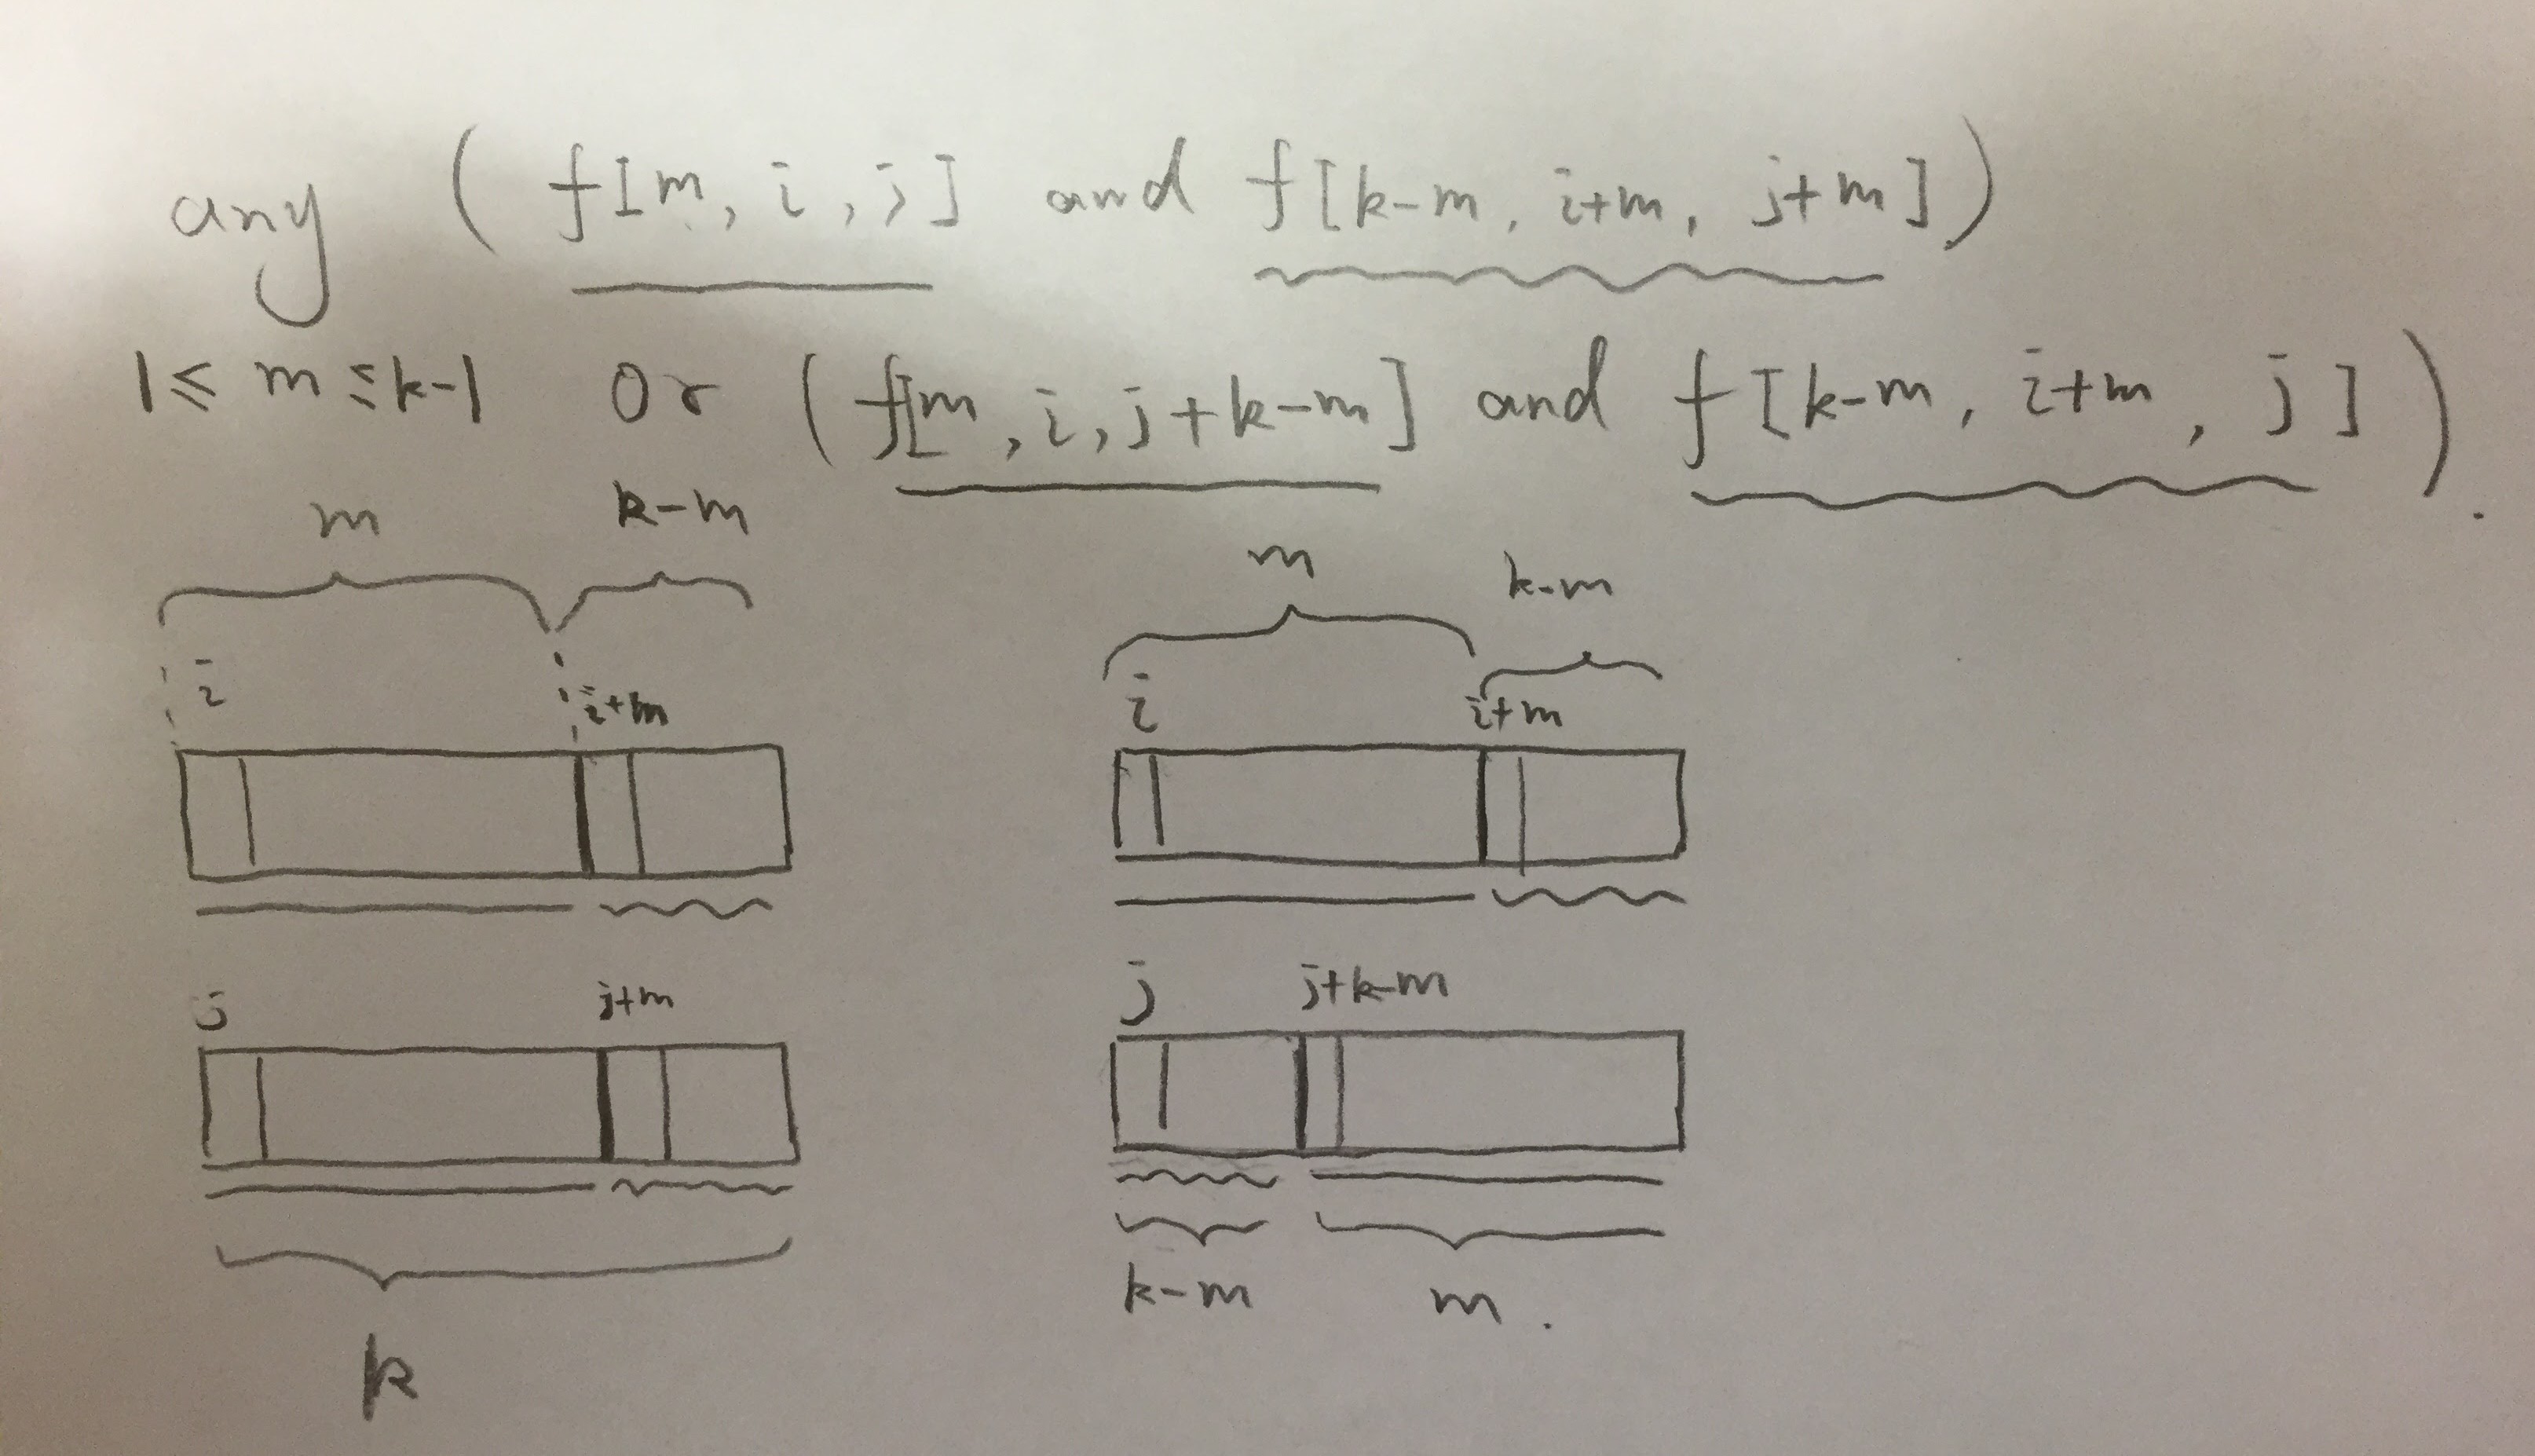 any ( f[m, i, j] and f[k-m, i+m, j+m] )
1 ≤ m ≤ k-1 or ( f[m, i, j+k-m] and f[k-m, i+m, j] ).
m k-m
m k-m
i i+m
i i+m
j j+m
j j+k-m
k
k-m m.